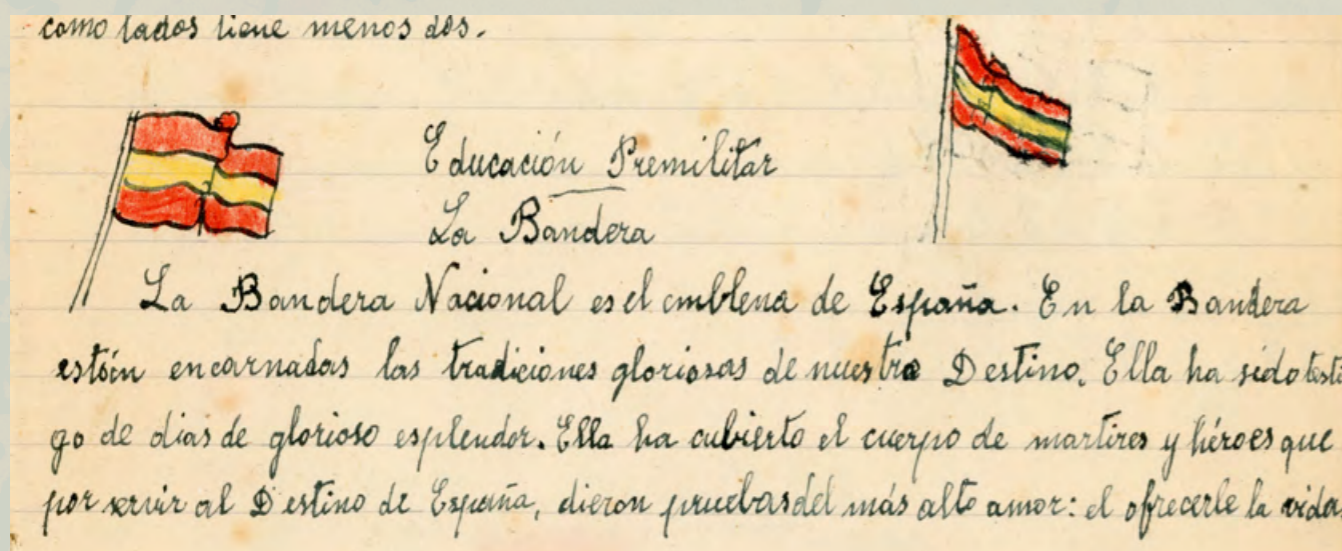 como lados tiene menos dos.
Educación Premilitar
La Bandera
La Bandera Nacional es el emblena de España. En la Bandera
están encarnadas las tradiciones gloriosas de nuestro Destino. Ella ha sido testi
go de dias de glorioso esplendor. Ella ha cubierto el cuerpo de martires y héroes que
por servir al Destino de España, dieron pruebas del más alto amor: el ofrecerle la vida.